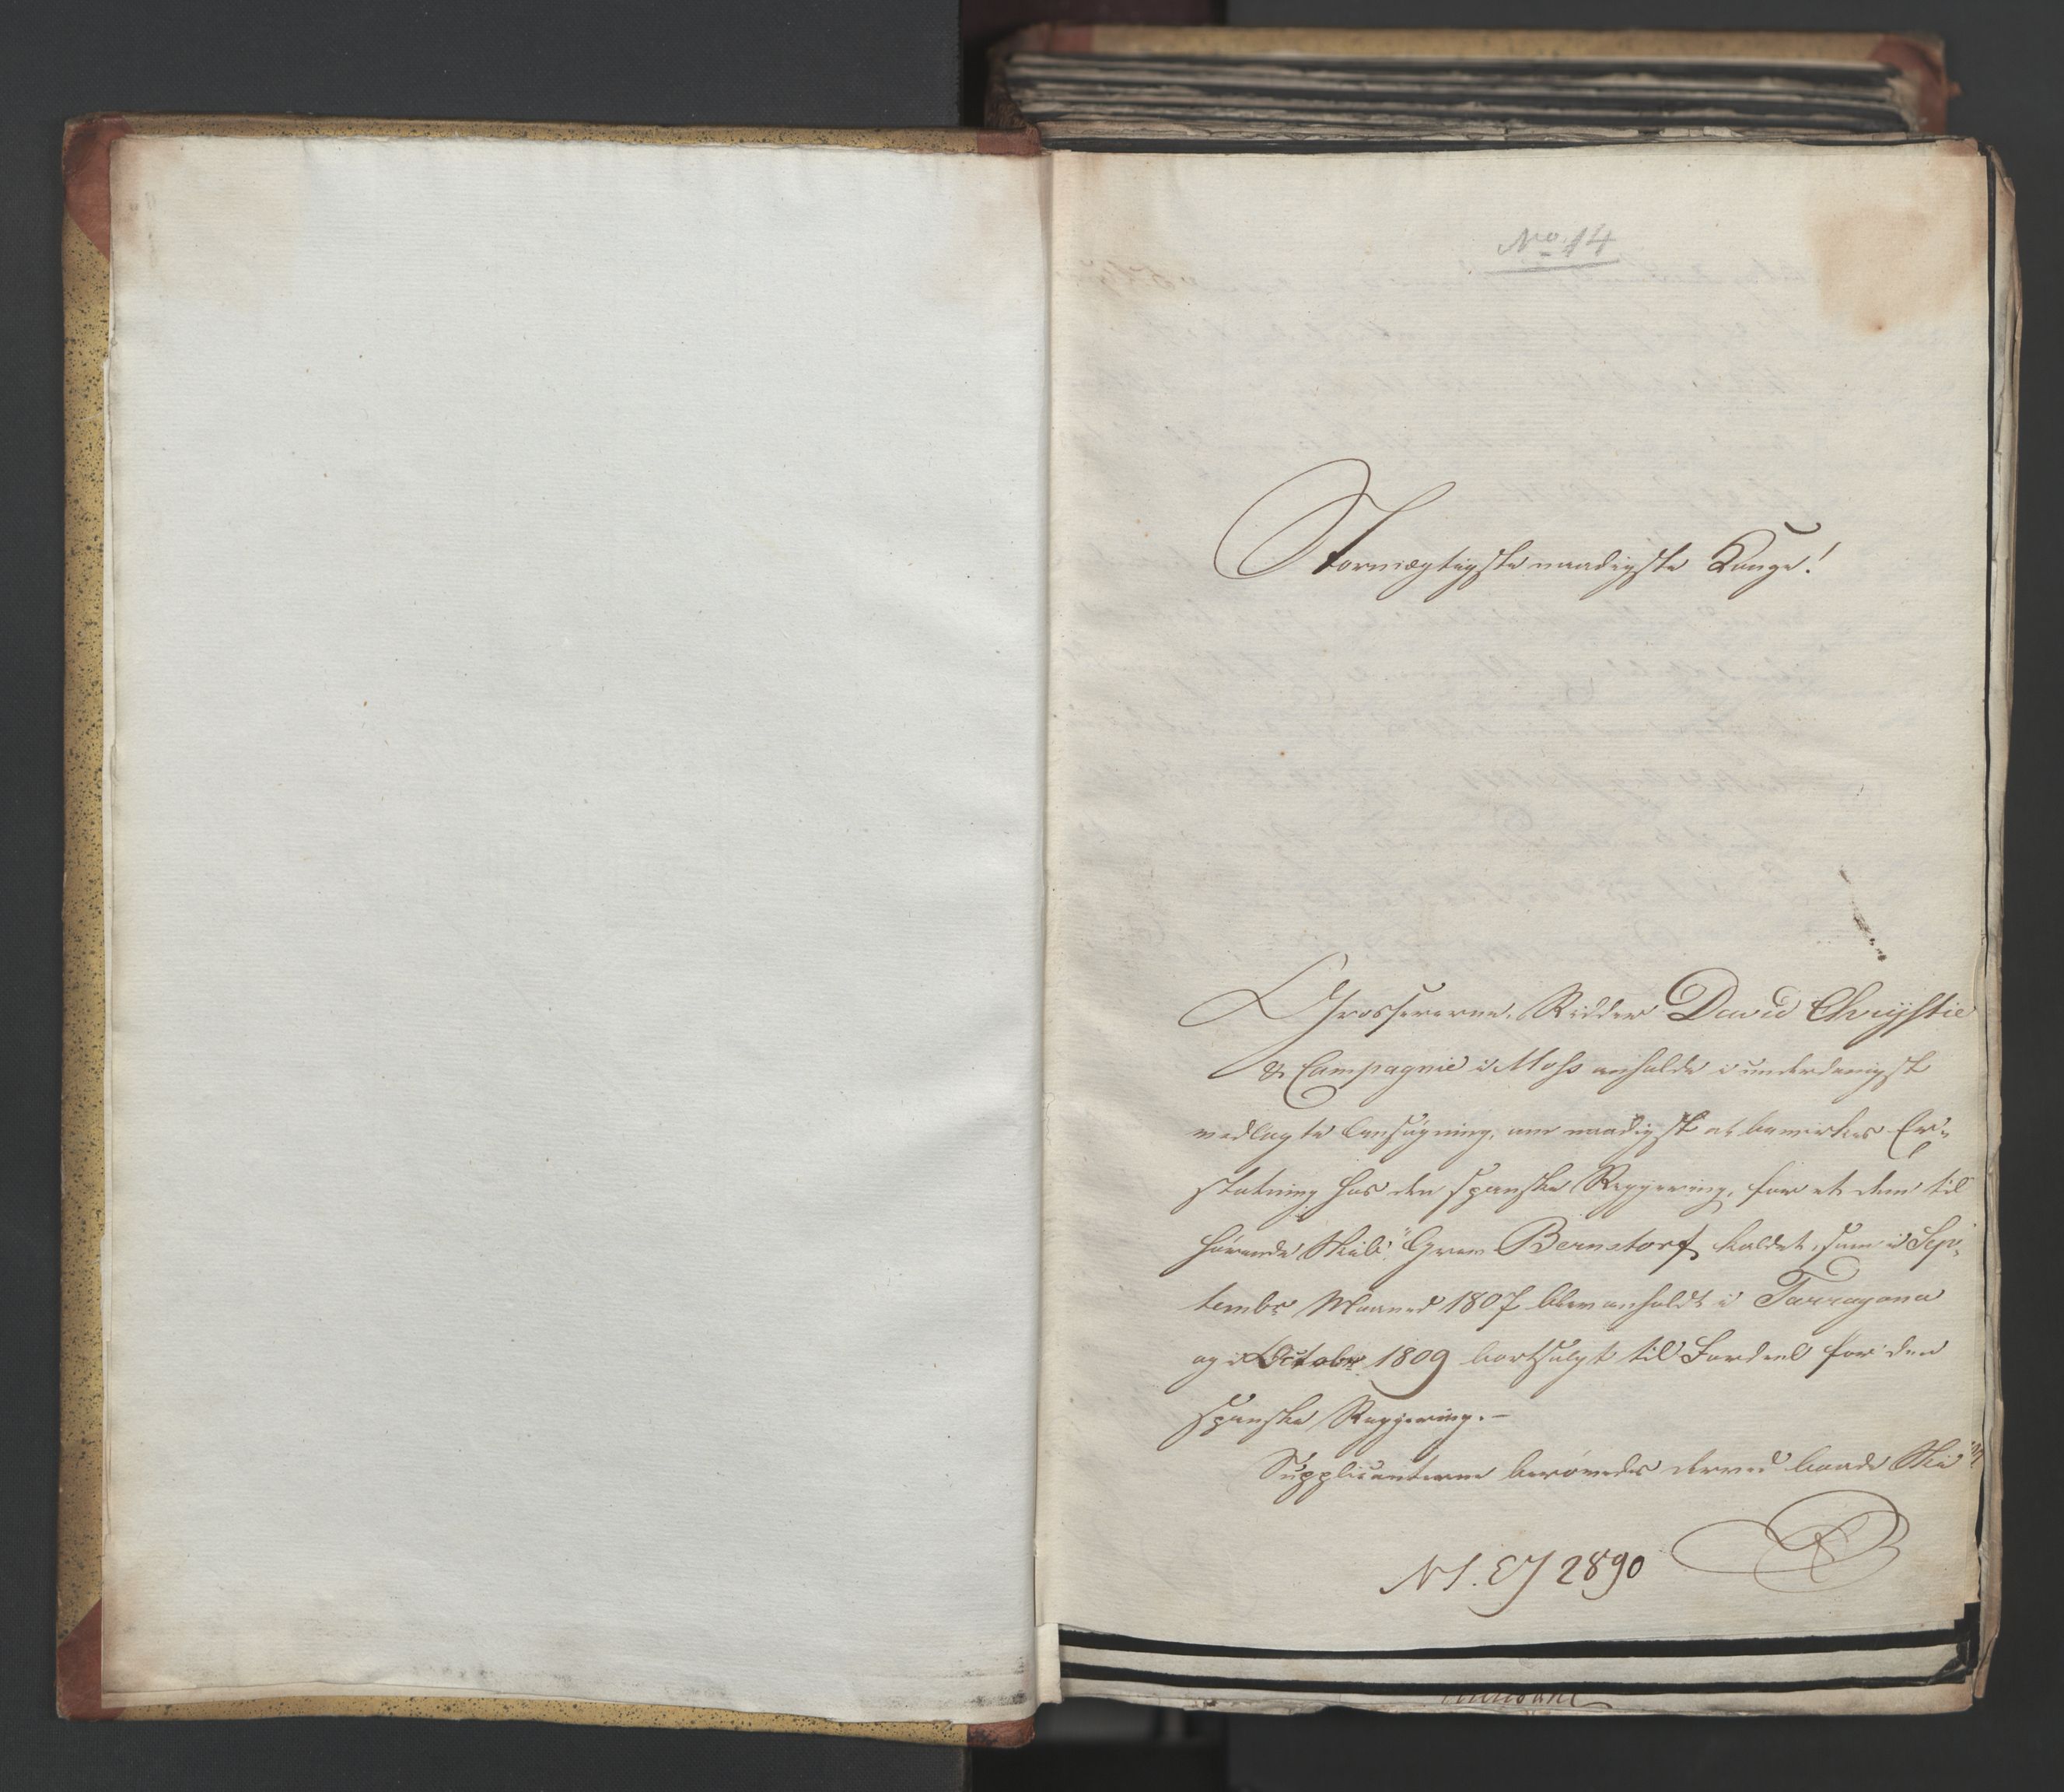 No. 14
Stormægtigste naadigste Konge!
Grossererne, Ridder David Chrystie
& Compagnie i Moss anholde i underdanigst
vedlagte Ansøgning, om naadigst at bevirkes Er„
statning hos den spanske Regjering, for et dem til
hørende Skib "Grev Bernstorf, kaldet, som i Sep„
tembr Maaned 1807 blev anholdt i Tarragona
og i Octobr 1809 bortsolgt til Fordeel for den
spanske Regjering. –
Supplicanterne berøvedes derved baade Ski
NS. EJ 2890